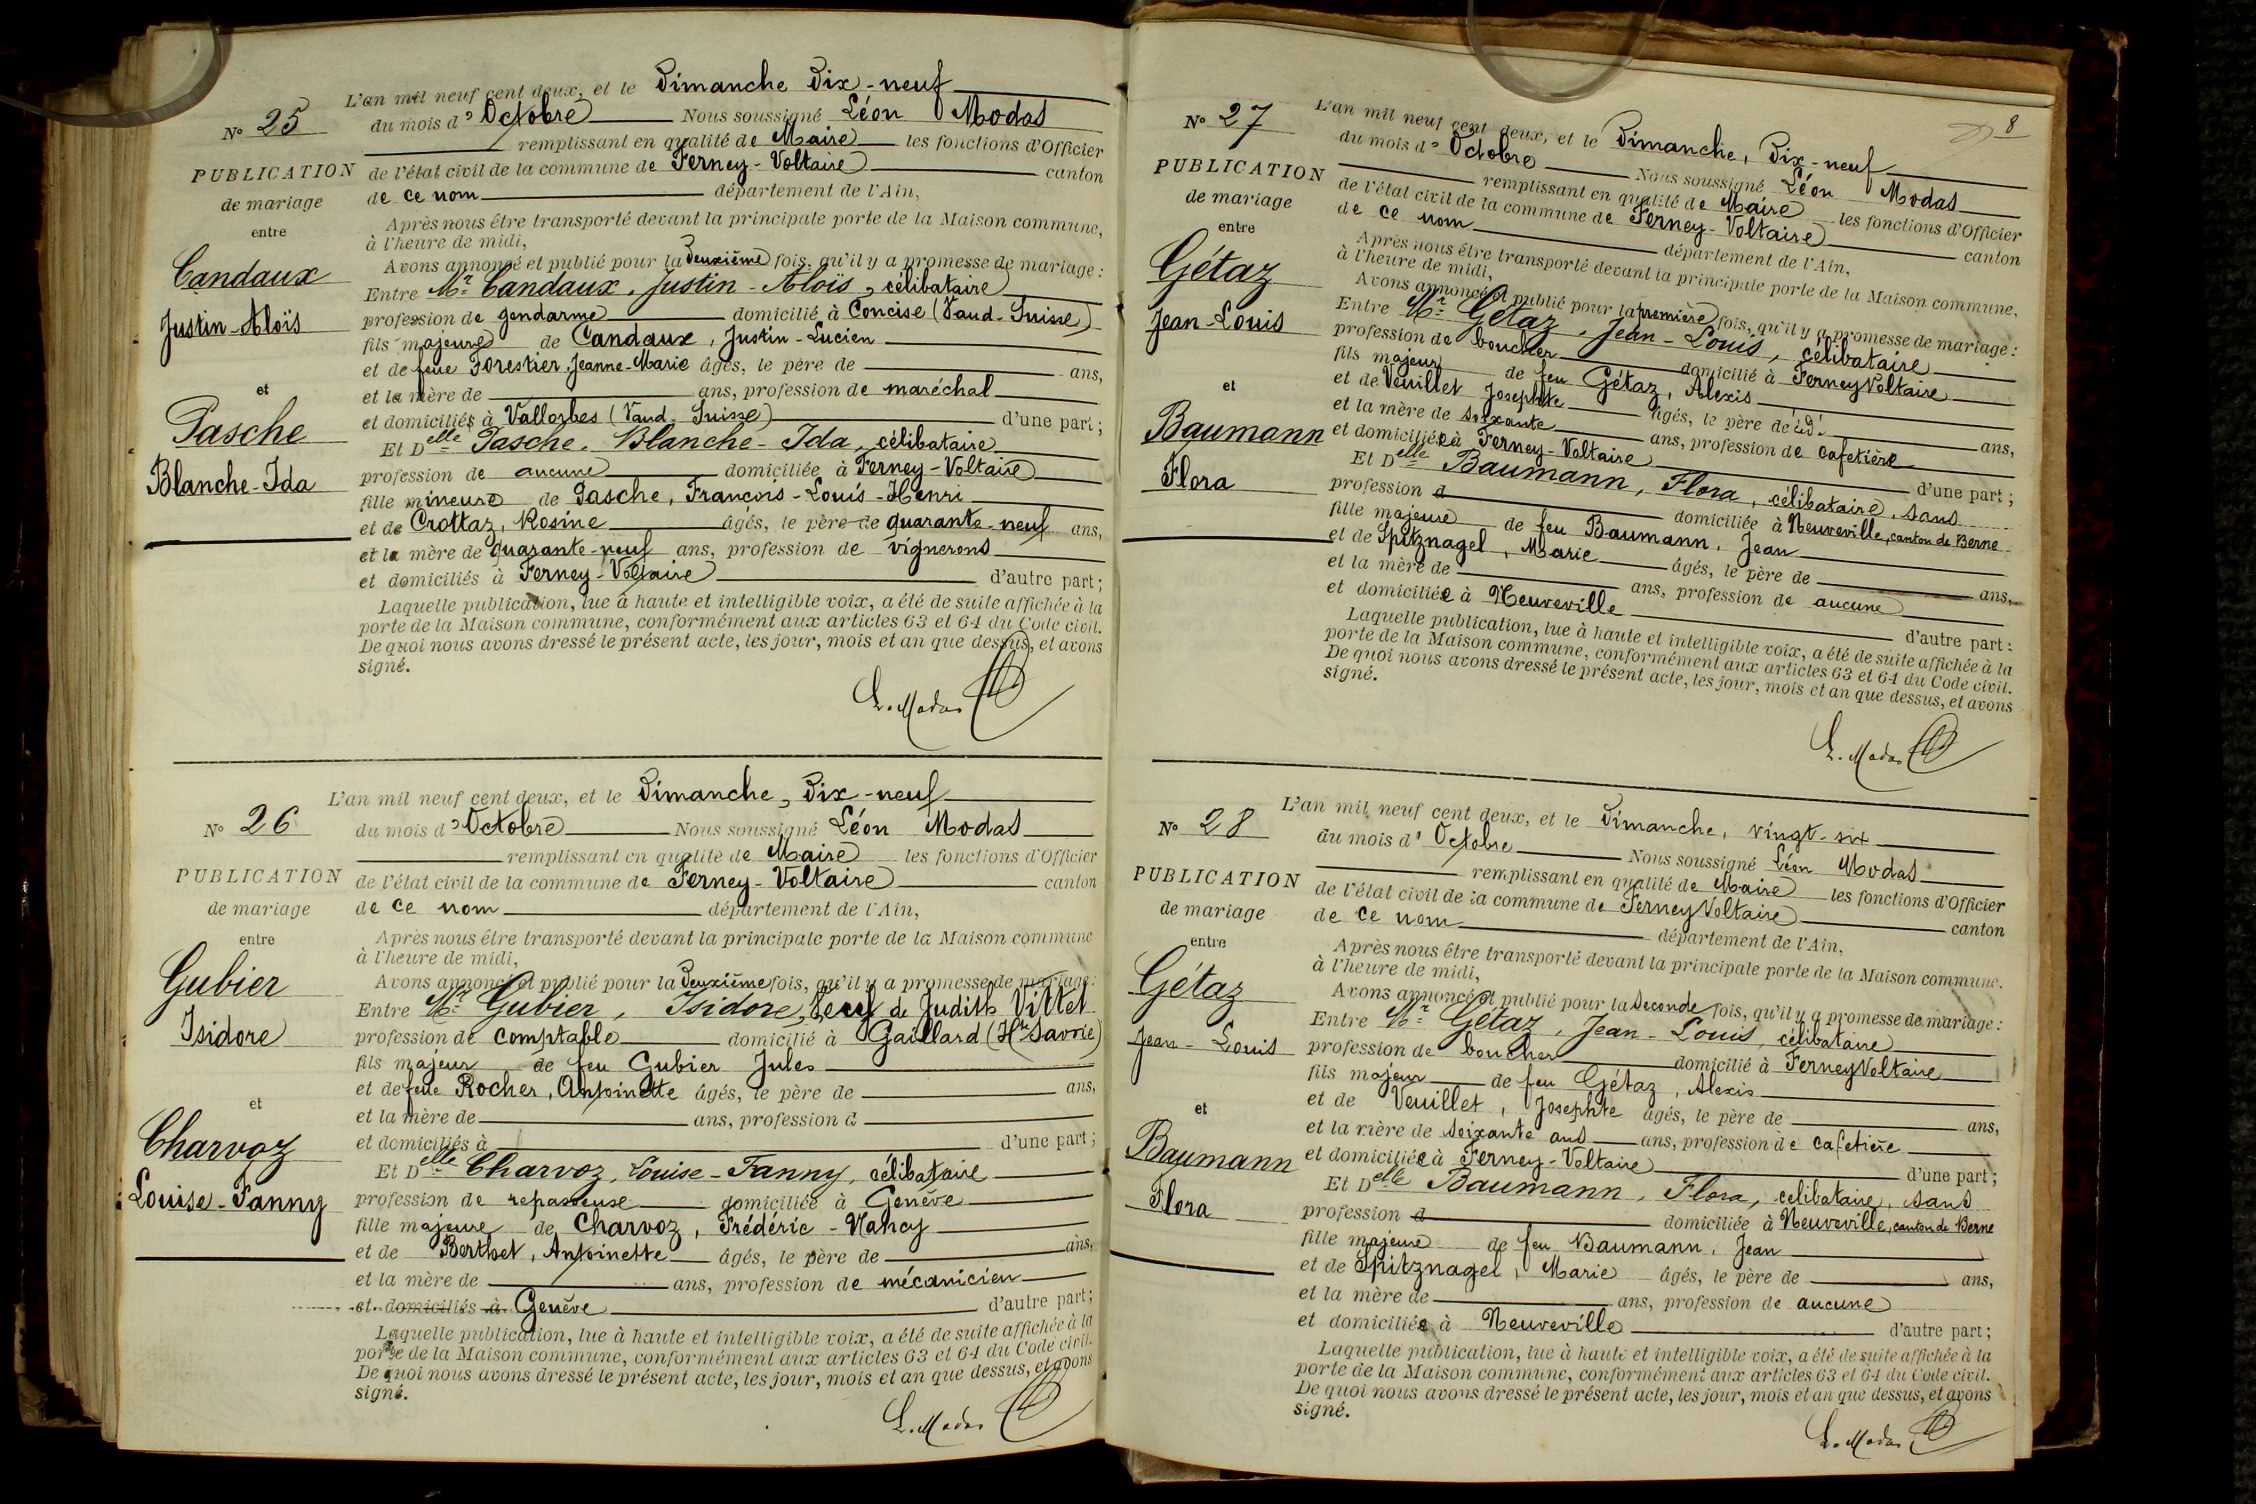 N° 25
PUBLICATION
de mariage
entre
Candaux
Justin-Aloïs
et
Pasche
Blanche-Ida
L'an mil neuf cent deux, et le Dimanche Dix-neuf
du mois d'Octobre Nous soussigné Léon Modas
remplissant en qualité de Maire les fonctions d'Officier
de l'état civil de la commune de Ferney-Voltaire canton
de ce nom département de l'Ain,
Après nous être transporté devant la principale porte de la Maison commune,
à l'heure de midi,
Avons annoncé et publié pour la Deuxième fois, qu'il y a promesse de mariage :
Entre Mr Candaux, Justin-Aloïs, célibataire
profession de gendarme domicilié à Concise (Vaud-Suisse)
fils majeur de Candaux, Justin-Lucien
et de feue Forestier, Jeanne-Marie âgés, le père de ans,
et la mère de ans, profession de maréchal
et domiciliés à Vallorbes (Vaud. Suisse) d'une part ;
Et Delle Pasche, Blanche-Ida, célibataire
profession de aucune domiciliée à Ferney-Voltaire
fille mineure de Pasche, François-Louis-Henri
et de Crottaz, Rosine âgés, le père de quarante-neuf ans,
et la mère de quarante-neuf ans, profession de vignerons
et domiciliés à Ferney-Voltaire d'autre part ;
Laquelle publication, lue à haute et intelligible voix, a été de suite affichée à la
porte de la Maison commune, conformément aux articles 63 et 64 du Code civil.
De quoi nous avons dressé le présent acte, les jour, mois et an que dessus, et avons
signé.
L. Modas
N° 26
PUBLICATION
de mariage
entre
Gubier
Isidore
et
Charvoz
Louise-Fanny
L'an mil neuf cent deux, et le Dimanche, Dix-neuf
du mois d'Octobre Nous soussigné Léon Modas
remplissant en qualité de Maire les fonctions d'Officier
de l'état civil de la commune de Ferney-Voltaire canton
de ce nom département de l'Ain,
Après nous être transporté devant la principale porte de la Maison commune
à l'heure de midi,
Avons annoncé et publié pour la Deuxième fois, qu'il y a promesse de mariage :
Entre Mr Gubier, Isidore, veuf de Judith Vittet
profession de comptable domicilié à Gaillard (Hte Savoie)
fils majeur de feu Gubier Jules
et de feue Rocher, Antoinette âgés, le père de ans,
et la mère de ans, profession d
et domiciliés à d'une part ;
Et Delle Charvoz, Louise-Fanny, célibataire
profession de repasseuse domiciliée à Genève
fille majeure de Charvoz, Frédéric-Nancy
et de Berthet, Antoinette âgés, le père de ans,
et la mère de ans, profession de mécanicien
et domiciliés à Genève d'autre part ;
Laquelle publication, lue à haute et intelligible voix, a été de suite affichée à la
porte de la Maison commune, conformément aux articles 63 et 64 du Code civil.
De quoi nous avons dressé le présent acte, les jour, mois et an que dessus, et avons
signé.
L. Modas
8
N° 27
PUBLICATION
de mariage
entre
Gétaz
Jean-Louis
et
Baumann
Flora
L'an mil neuf cent deux, et le Dimanche, Dix-neuf
du mois d'Octobre Nous soussigné Léon Modas
remplissant en qualité de Maire les fonctions d'Officier
de l'état civil de la commune de Ferney-Voltaire canton
de ce nom département de l'Ain,
Après nous être transporté devant la principale porte de la Maison commune,
à l'heure de midi,
Avons annoncé et publié pour la première fois, qu'il y a promesse de mariage :
Entre Mr Gétaz, Jean-Louis, célibataire
profession de boucher domicilié à Ferney Voltaire
fils majeur de feu Gétaz, Alexis
et de Veuillet Josephte âgés, le père de ans,
et la mère de soixante ans, profession de cafetière
et domiciliée à Ferney-Voltaire d'une part ;
Et Delle Baumann, Flora, célibataire, sans
profession d domiciliée à Neuveville, canton de Berne
fille majeure de feu Baumann, Jean
et de Spitznagel, Marie âgés, le père de ans,
et la mère de ans, profession de aucune
et domiciliée à Neuveville d'autre part :
Laquelle publication, lue à haute et intelligible voix, a été de suite affichée à la
porte de la Maison commune, conformément aux articles 63 et 64 du Code civil.
De quoi nous avons dressé le présent acte, les jour, mois et an que dessus, et avons
signé.
L. Modas
N° 28
PUBLICATION
de mariage
entre
Gétaz
Jean-Louis
et
Baumann
Flora
L'an mil neuf cent deux, et le Dimanche, vingt-six
du mois d'Octobre Nous soussigné Léon Modas
remplissant en qualité de Maire les fonctions d'Officier
de l'état civil de la commune de Ferney Voltaire canton
de ce nom département de l'Ain,
Après nous être transporté devant la principale porte de la Maison commune,
à l'heure de midi,
Avons annoncé et publié pour la seconde fois, qu'il y a promesse de mariage :
Entre Mr Gétaz, Jean-Louis, célibataire
profession de boucher domicilié à Ferney Voltaire
fils majeur de feu Gétaz, Alexis
et de Veuillet, Josephte âgés, le père de ans,
et la mère de soixante ans ans, profession de cafetière
et domiciliée à Ferney-Voltaire d'une part ;
Et Delle Baumann, Flora, célibataire, sans
profession d domiciliée à Neuveville, canton de Berne
fille majeure de feu Baumann, Jean
et de Spitznagel, Marie âgés, le père de ans,
et la mère de ans, profession de aucune
et domiciliée à Neuveville d'autre part ;
Laquelle publication, lue à haute et intelligible voix, a été de suite affichée à la
porte de la Maison commune, conformément aux articles 63 et 64 du Code civil.
De quoi nous avons dressé le présent acte, les jour, mois et an que dessus, et avons
signé.
L. Modas